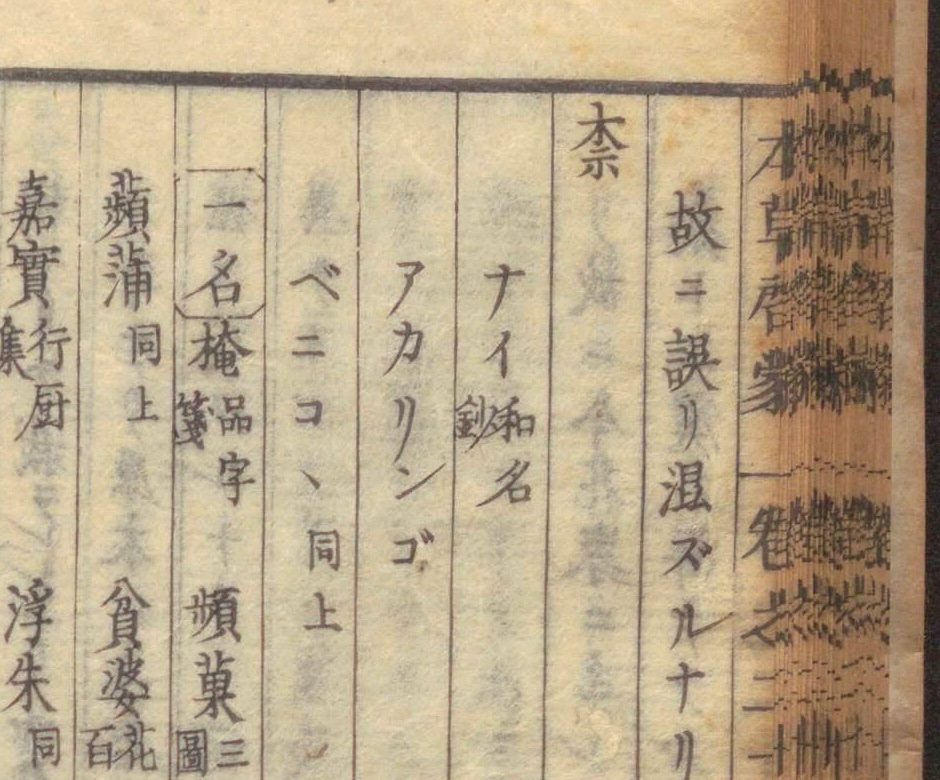 本草啓蒙 卷之二
故ニ誤リ混ズルナリ
柰
ナイ 和名鈔
アカリンゴ
ベニコヽ 同上
一名 品字箋 頻菓 三圖
蘋蒲 同上 貧婆 花百
嘉實 行厨集 浮朱 同